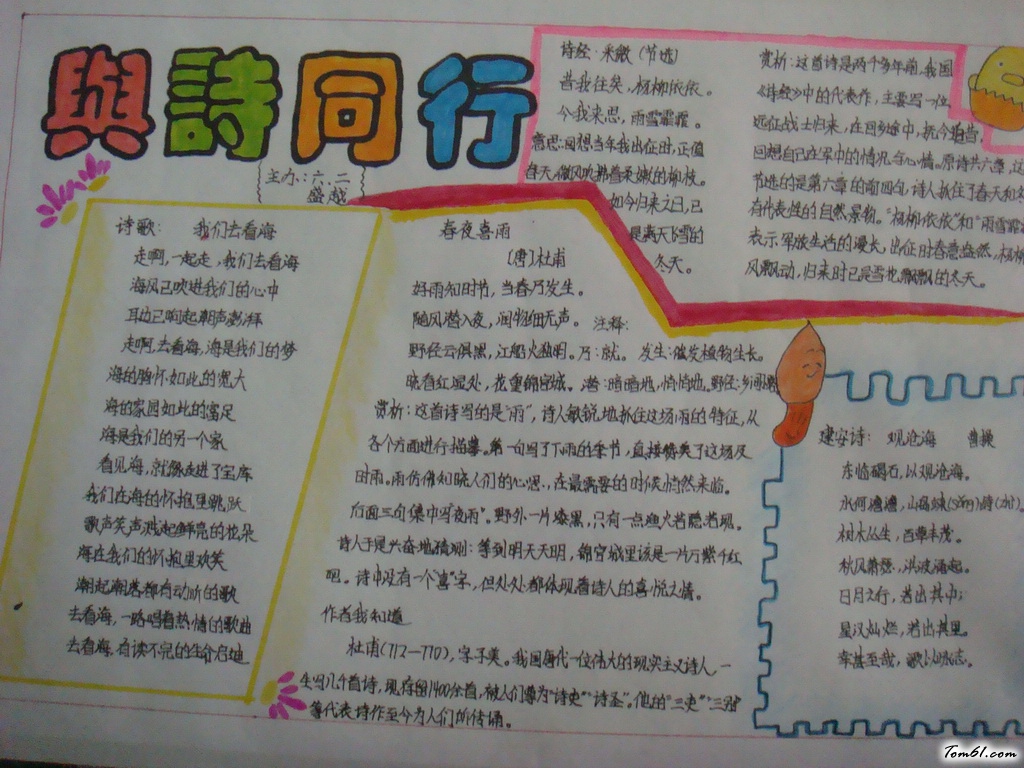 與詩同行
主办：六、二
盛越
诗歌：  我们去看海
走啊，一起走，我们去看海
海风已吹进我们的心中
耳边已响起潮声澎湃
走啊，去看海，海是我们的梦
海的胸怀如此的宽大
海的家园如此的富足
海是我们的另一个家
看见海，就像走进了宝库
我们在海的怀抱里跳跃
歌声笑声溅起鲜亮的花朵
海在我们的怀抱里欢笑
潮起潮落都有动听的歌
去看海，一路唱着热情的歌曲
去看海，有读不完的生命启迪
春夜喜雨
〔唐〕杜甫
好雨知时节，当春乃发生。
随风潜入夜，润物细无声。 注释：
野径云俱黑，江船火独明。乃：就。 发生：催发植物生长。
晓看红湿处，花重锦官城。潜：暗暗地，悄悄地。野径：
赏析：这首诗写的是“雨”，诗人敏锐地抓住这场雨的特征，从
各个方面进行描摹。第一句写了下雨的季节，直接赞美了这场及
时雨。雨仿佛知晓人们的心思，在最需要的时候悄然来临。
后面三句集中写“夜雨”。野外一片漆黑，只有一点渔火若隐若现。
诗人于是兴奋地猜测：等到明天天明，锦官城里该是一片万紫千红
吧。诗中没有一个“喜”字，但处处都体现着诗人的喜悦之情。
作者我知道
杜甫(712—770)，字子美。我国唐代一位伟大的现实主义诗人，一
生写几千首诗，现存留1400余首，被人们尊为“诗史”“诗圣”。他的“三吏”“三别”
等代表诗作至今为人们所传诵。
诗经·采薇（节选）
昔我往矣，杨柳依依。
今我来思，雨雪霏霏。
意思：回想当年我出征时，正值
春天，微风吹拂着柔嫩的柳枝。
如今归来之日，已
是满天飞雪的
冬天。
赏析：这首诗是两千多年前，我国
《诗经》中的代表作，主要写一位
远征战士归来，在回乡途中，抚今追昔，
回想自己在军中的情况与心情。原诗共六章，这
节选的是第六章的前四句，诗人抓住了春天和冬
有代表性的自然景物。“杨柳依依”和“雨雪霏霏”
表示军旅生活的漫长，出征时春意盎然，杨柳
风飘动，归来时已是雪花飘飘的冬天。
建安诗： 观沧海  曹操
东临碣石，以观沧海。
水何澹澹，山岛竦(sǒng)峙(zhì)。
树木丛生，百草丰茂。
秋风萧瑟，洪波涌起。
日月之行，若出其中；
星汉灿烂，若出其里。
幸甚至哉，歌以咏志。
Tom61.com